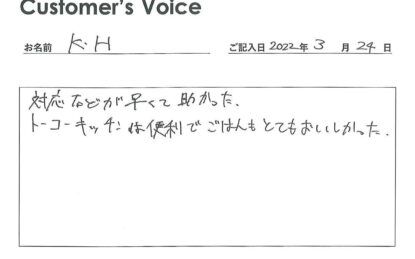 Customer's Voice
お名前 K・H ご記入日 2022年 3 月 24 日
対応などが早くて助かった.
トーコーキッチンは便利でごはんもとてもおいしかった.